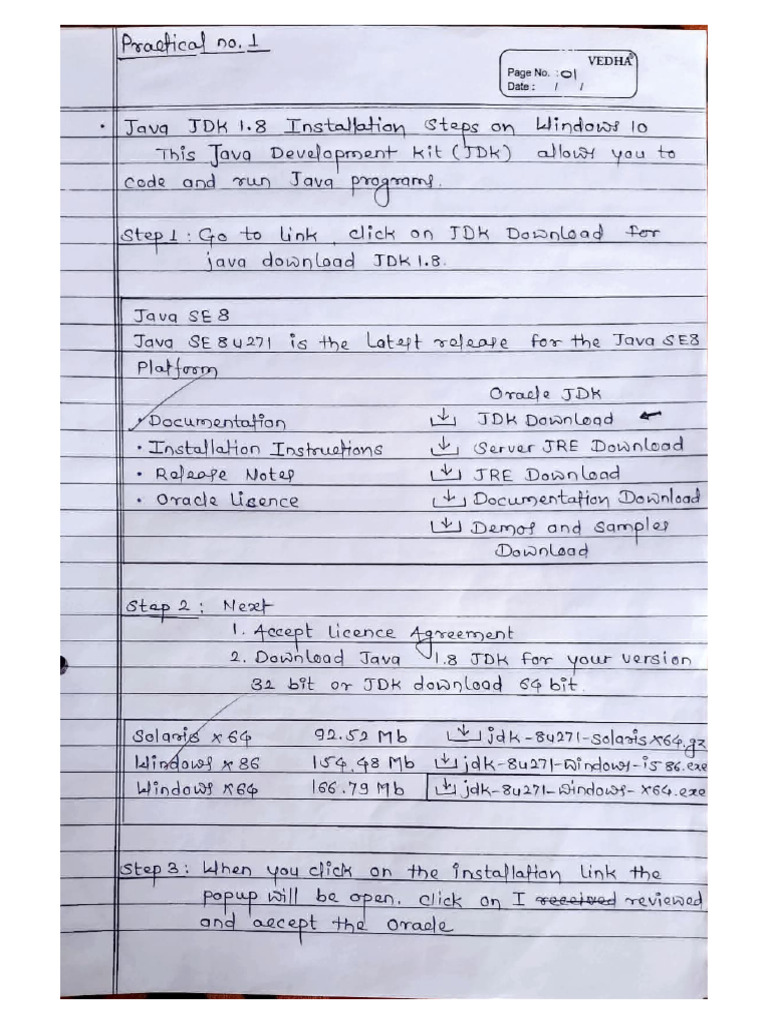 Practical no. 1
VEDHA®
Page No. : 01
Date : / /
• Java JDK 1.8 Installation Steps on Windows 10
This Java Development Kit (JDK) allows you to
code and run Java programs.
Step 1 : Go to link, click on JDK Download for
java download JDK 1.8.
Java SE 8
Java SE 8u271 is the Latest release for the Java SE8
Platform
Oracle JDK
• Documentation JDK Download ←
• Installation Instructions Server JRE Download
• Release Notes JRE Download
• Oracle Lisence Documentation Download
Demos and Samples
Download
Step 2 : Next
1. Accept Licence Agreement
2. Download Java 1.8 JDK for your version
32 bit or JDK download 64 bit.
Solaris x 64 92.52 Mb jdk-8u271-Solarisx64.gz
Windows x 86 154.48 Mb jdk-8u271-windows-i586.exe
Windows x64 166.79 Mb jdk-8u271-windows-x64.exe
Step 3 : When you click on the installation link the
popup will be open. click on I received reviewed
and accept the Oracle